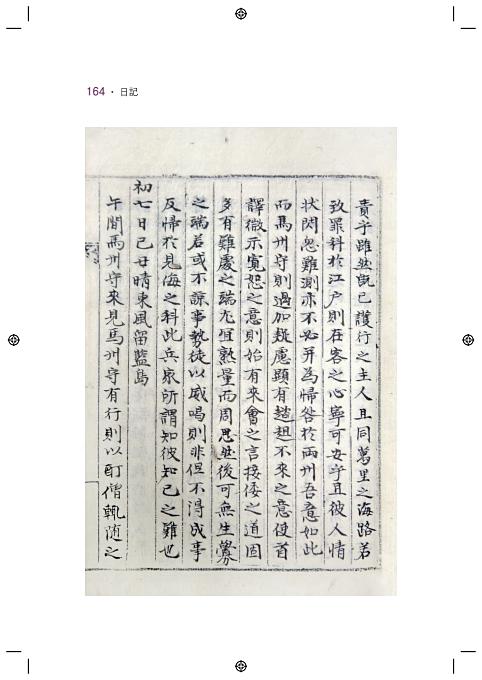 164 · 日記
責乎雖然旣已護行之主人且同萬里之海路若
致罪科於江戶則在客之心寧可安乎且彼人情
狀閃忽難測亦不必幷爲歸咎於兩州吾意如此
而馬州守則過加疑慮顯有趑趄不來之意使首
譯微示寬恕之意則始有來會之言接倭之道固
多有難處之端尤宜熟量而周思然後可無生釁
之端若或不諒事勢徒以威喝則非但不得成事
反歸於見侮之科此兵家所謂知彼知己之難也
初七日己丑晴東風留藍島
午間馬州守來見馬州守有行則以酊僧輒随之